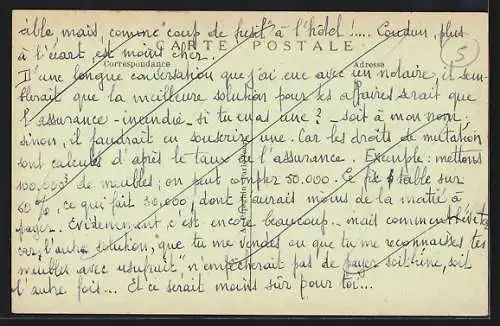 able, mais, comme "coup de fusil" à l'hôtel !.... Coudun, plus
à l'écart, est moins cher.
CARTE POSTALE
Correspondance
Adresse
5
D'une longue conversation que j'ai eue avec un notaire, il sem-
blerait que la meilleure solution pour tes affaires serait que
l'assurance - incendie - si tu en as une ? - soit à mon nom,
sinon, il faudrait en souscrire une. Car les droits de mutation
sont calculés d'après le taux de l'assurance. Exemple : mettons
100.000 de meubles ; on peut compter 50.000. Le fisc table sur
60 %, ce qui fait 30,000, dont j'aurais moins de la moitié à
payer. Évidemment c'est encore beaucoup.. mais comment
car, l'autre solution, "que tu me vendes ou que tu me reconnaisses tes
meubles avec usufruit" n'empêcherait pas de payer soit une, soit
l'autre fois... Et ce serait moins sûr pour toi...